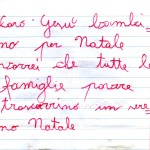 Caro Gesù bambi
no per Natale
vorrei che tutte le
famiglie povere
trascorrino un sere
no Natale